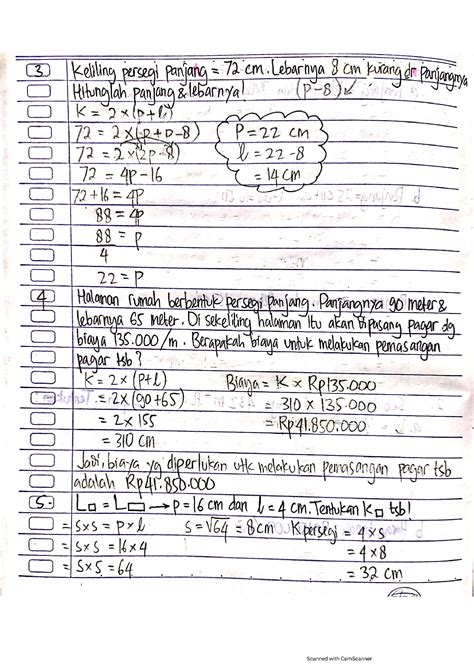 3 Keliling persegi panjang = 72 cm. Lebarnya 8 cm kurang dr panjangnya
Hitunglah panjang & lebarnya! (P-8)
K = 2 x (p+l)
72 = 2 x (p+p-8)
72 = 2 x (2p-8)
72 = 4p-16
72+16 = 4p
88 = 4p
88 = p
4
22 = p
P = 22 cm
l = 22-8
= 14 cm
4 Halaman rumah berbentuk persegi panjang. Panjangnya 90 meter &
lebarnya 65 meter. Di sekeliling halaman itu akan dipasang pagar dg
biaya 135.000/m. Berapakah biaya untuk melakukan pemasangan
pagar tsb?
K = 2 x (p+l) Biaya = K x Rp135.000
= 2 x (90+65) = 310 x 135.000
= 2 x 155 = Rp41.850.000
= 310 cm
Jadi, biaya yg diperlukan utk melakukan pemasangan pagar tsb
adalah Rp41.850.000
5. L□ = L▭ → p = 16 cm dan l = 4 cm. Tentukan K□ tsb!
= s x s = p x l s = √64 = 8 cm K persegi = 4 x s
= s x s = 16 x 4 = 4 x 8
= s x s = 64 = 32 cm
Scanned with CamScanner